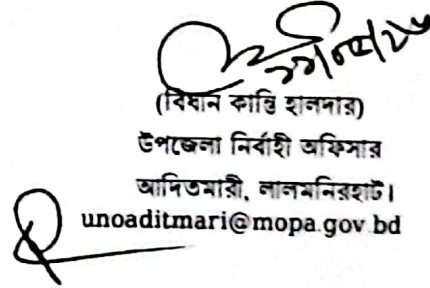 (বিধান কান্তি হালদার)
উপজেলা নির্বাহী অফিসার
আদিতমারী, লালমনিরহাট।
unoaditmari@mopa.gov.bd